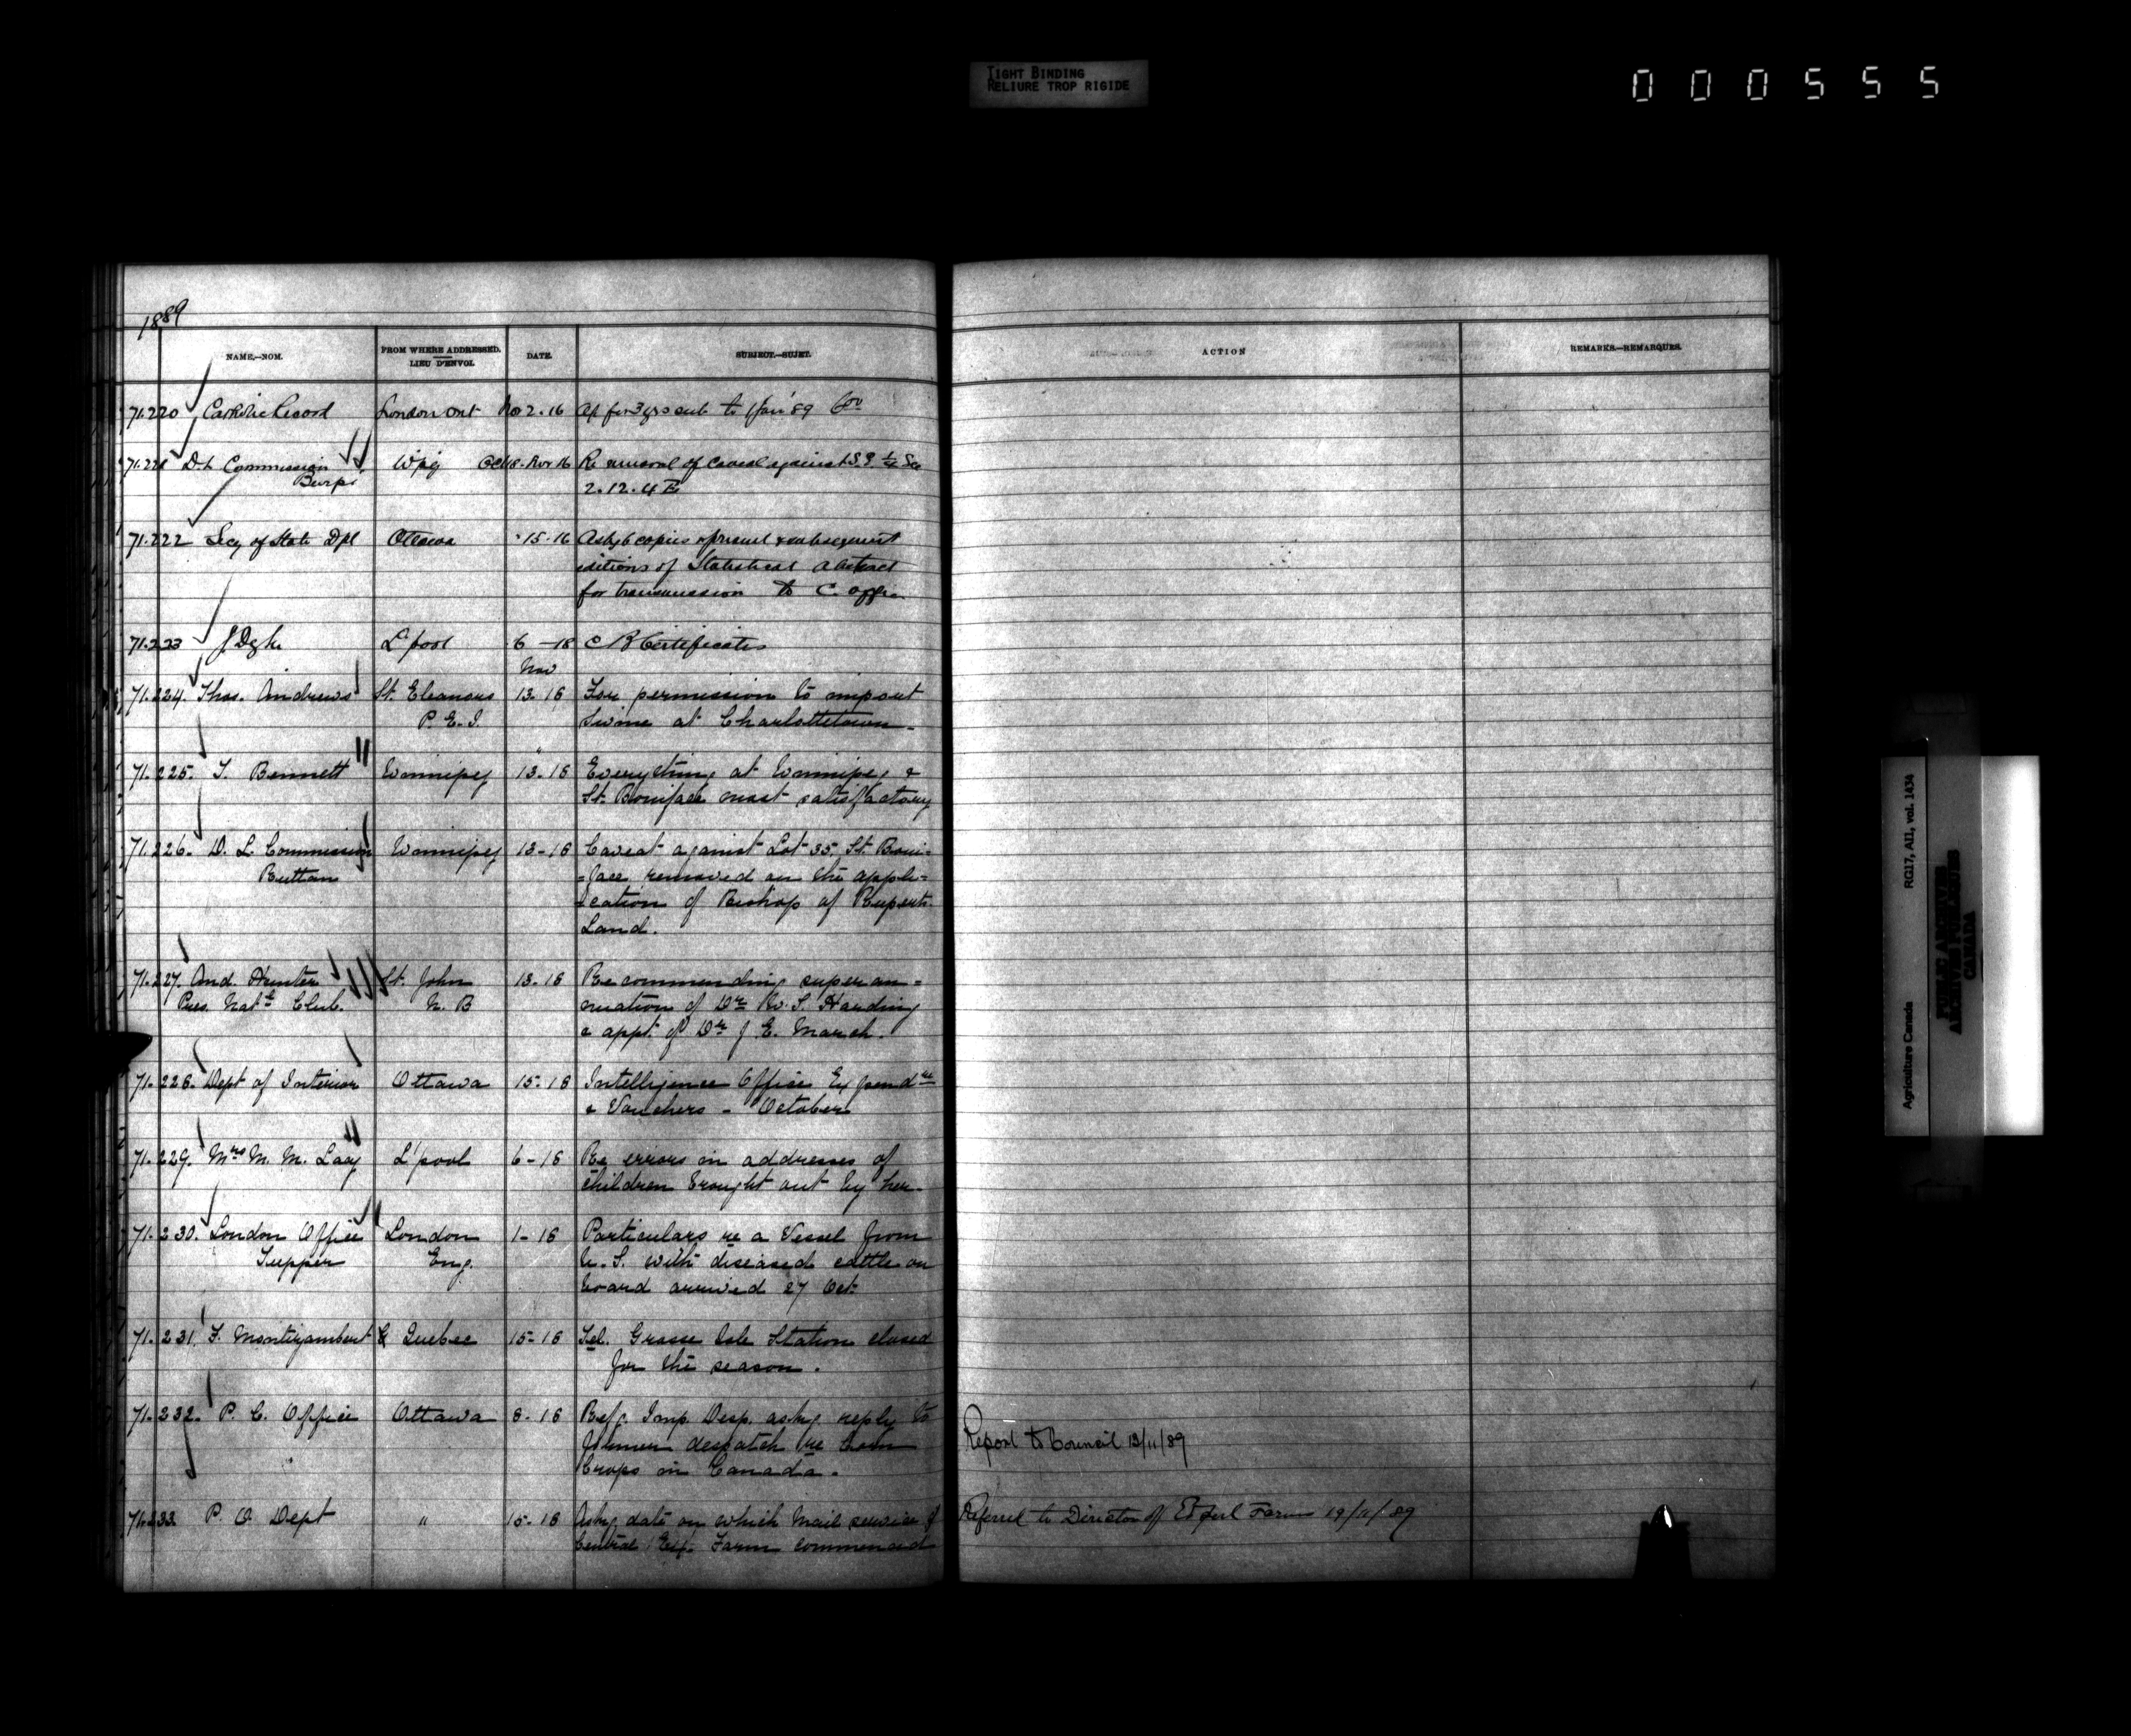 TIGHT BINDING
RELIURE TROP RIGIDE
000555
1889
NAME.—NOM.
FROM WHERE ADDRESSED.
LIEU D'ENVOI.
DATE.
SUBJECT.—SUJET.
ACTION
REMARKS.—REMARQUES.
71.220 Catholic Record London Ont Nov 2.16 for 3 yrs sub to 1 Jan '89
71.221 D. L. Commission Wpg Oct 18. Nov 16 Re removal of Caveat against S.E. 1/4 Sec
Burpé 2.12.4 E
71.222 Secy of State Dpt Ottawa 15.16 Askg 6 copies of present & subsequent
editions of Statistical Abstract
for transmission to C. Office
71.223 J Dyke L'pool 6-18 C B Certificates
Nov
71.224. Thos. Andrews St. Eleanors 13.16 For permission to import
P.E.I. Swine at Charlottetown.
71.225. T. Bennett Winnipeg 13.16 Everything at Winnipeg &
St. Boniface most satisfactory
71.226. D. L. Commission Winnipeg 13-16 Caveat against Lot 35, St. Boni=
Ruttan =face removed on the appli=
=cation of Bishop of Ruperts
Land.
71.227. And. Hunter St. John 13.16 Recommending superan=
Pres. Nat.l Club. N. B nuation of Dr W. S. Harding
& appt. of Dr J. E. March.
71.228. Dept of Interior Ottawa 15-16 Intelligence Office Expendre
& Vouchers - October
71.229. Mrs M. M. Lacy L'pool 6-16 Re errors in addresses of
children brought out by her.
71.230. London Office London 1-16 Particulars re a Vessel from
Tupper Eng. U.S. with diseased cattle on
board arrived 27 Oct.
71.231. F. Montizambert Quebec 15-16 Tel. Grosse Isle Station closed
for the season.
71.232. P. C. Office Ottawa 8-16 Refg. Imp. Desp. askg. reply to
former despatch re
Crops in Canada.
Report to Council 13/11/89
71.233 P. O. Dept " 15-16 Askg date on which Mail service of
Central Exp. Farm commenced
Referred to Director of Exptl Farms 19/11/89
Agriculture Canada RG17, AI1, vol. 1434
PUBLIC ARCHIVES
ARCHIVES PUBLIQUES
CANADA